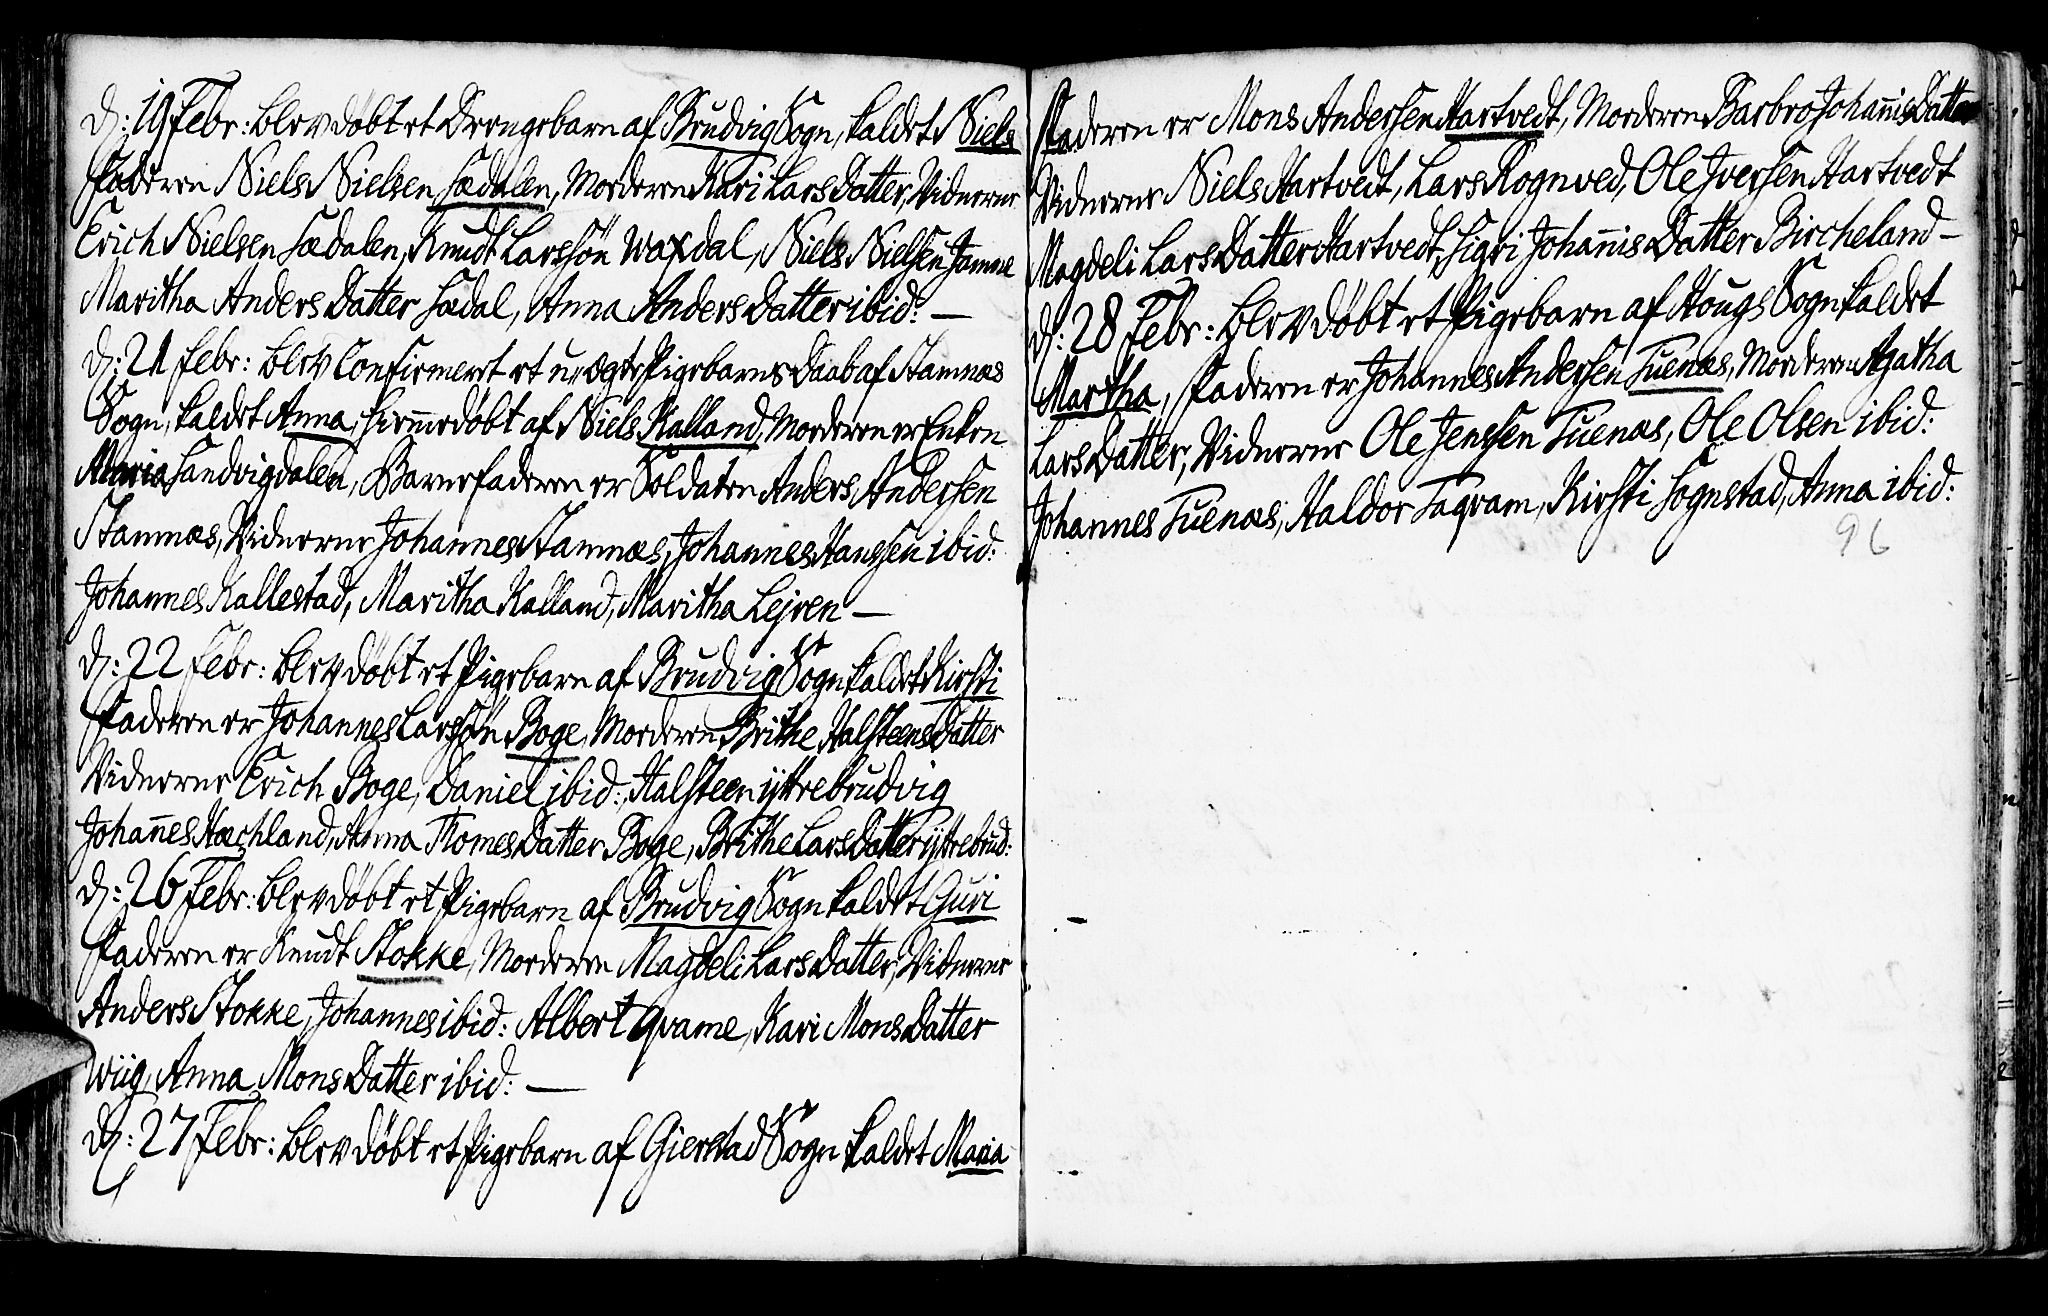 D: 19 Febr: blev döbt et Drengebarn af Brudvig Sogn, kaldet Niels
Faderen Niels Nielsen Sædalen, Moderen Kari Lars Datter, Vidnerne
Erich Nielsen Sædalen, Knudt Larssön Waxdal, Niels Nielsen Jamne
Maritha Anders Datter Sædal, Anna Anders Datter ibid: —
D: 21 Febr: blev Confirmeret et uægte Pigebarns Daab af Stamnæs
Sogn, kaldet Anna, hiemmedöbt af Niels Kalland, Moderen er Enken
Maria Sandvigdalen, Barnefaderen er Soldaten Anders Andersen
Stamnæs, Vidnerne Johannes Stamnæs, Johannes Hanssen ibid:
Johannes Kallestad, Maritha Kalland, Maritha Lejren —
D: 22 Febr: blev döbt et Pigebarn af Brudvig Sogn kaldet Kirsti
Faderen er Johannes Larssön Boge, Moderen Brithe Halsteens Datter
Vidnerne Erich Boge, Daniel ibid:, Halsteen yttrebrudvig
Johañes Hæchland, Anna Thomes Datter Boge, Brithe Lars Datter yttrebrud:
D: 26 Febr: blev döbt et Pigebarn af Brudvig Sogn kaldet Guri
Faderen er Knudt Stokke, Moderen Magdeli Lars Datter, Vidnerne
Anders Stokke, Johannes ibid: Albert Qvame, Kari Mons Datter
Wiig, Anna Mons Datter ibid: —
D: 27 Febr: blev döbt et Pigebarn af Gierstad Sogn kaldet Maria
Faderen er Mons Andersen Hartvedt, Moderen Barbro Johañis Datter
Vidnerne Niels Hartvedt, Lars Rognved, Ole Iversen Hartvedt
Magdeli Lars Datter Hartvedt, Sigri Johañis Datter Bircheland —
D: 28 Febr: blev döbt et Pigebarn af Hougs Sogn kaldet
Martha, Faderen er Johannes Andersen Tuenæs, Moderen Agatha
Lars Datter, Vidnerne Ole Jenssen Tuenæs, Ole Olsen ibid:
Johannes Tuenæs, Haldor Taqvam, Kirsti Sognstad, Anna ibid:
96